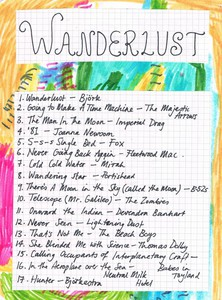 WANDERLUST
1. Wanderlust – Björk
2. Going to Make A Time Machine – The Majestic
Arrows
3. The Man In The Moon – Imperial Drag
4. '81 – Joanna Newsom
5. S-s-s Single Bed – Fox
6. Never Going Back Again – Fleetwood Mac.
7. Cold Cold Water – Mirah
8. Wandering Star – Portishead
9. There's A Moon in the Sky (Called the Moon) – B52s
10. Telescope (Mr. Galileo) – The Zombies
11. Onward the Indian – Devendra Banhart
12. Never Seen – Lightening Dust
13. That's Not Me – The Beach Boys
14. She Blinded Me with Science – Thomas Dolby
15. Calling Occupants of Interplanetary Craft –
Babes in
Toyland
16. In the Aeroplane over the Sea –
Neutral Milk
Hotel
17. Hunter – Björkestra